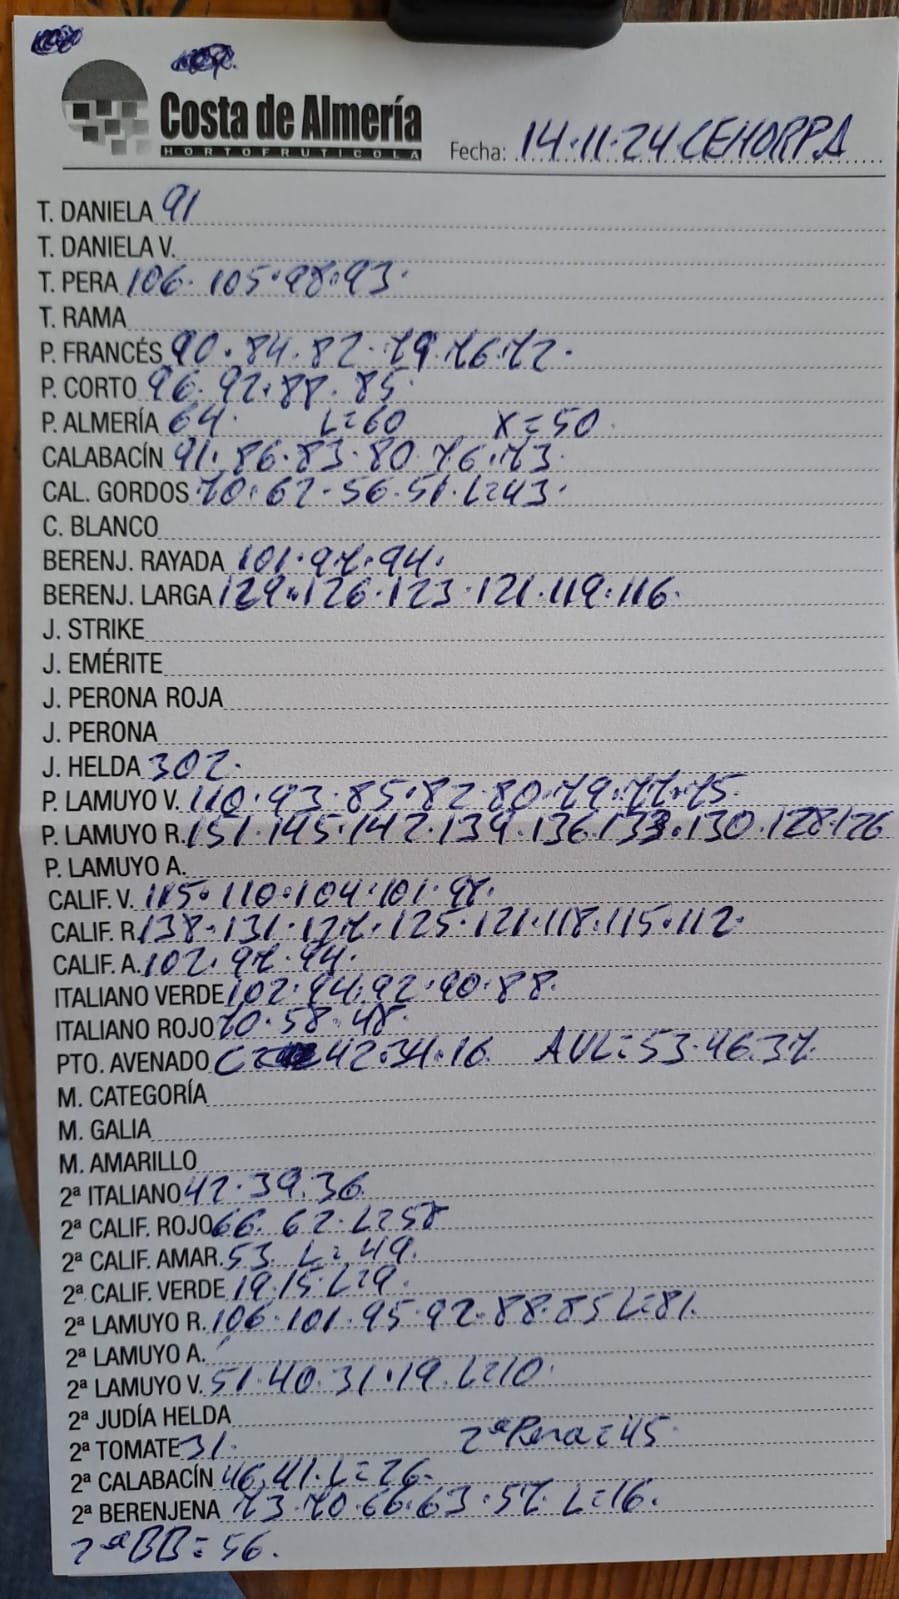 Costa de Almería
HORTOFRUTICOLA
Fecha: 14.11.24 CEHORPA
T. DANIELA 91
T. DANIELA V.
T. PERA 106. 105.98.93.
T. RAMA
P. FRANCÉS 90.84.82.79.76.72.
P. CORTO 96.92.88.85
P. ALMERÍA 64. L=60 X=50.
CALABACÍN 91.86.83.80.76.73.
CAL. GORDOS 70.62.56.51.L=43.
C. BLANCO
BERENJ. RAYADA 101.97.94.
BERENJ. LARGA 129.126.123.121.119.116.
J. STRIKE
J. EMÉRITE
J. PERONA ROJA
J. PERONA
J. HELDA 302.
P. LAMUYO V. 110.93.85.82.80.79.77.75.
P. LAMUYO R. 151.145.142.139.136.133.130.128.126
P. LAMUYO A.
CALIF. V. 115.110.104.101.97.
CALIF. R. 138.131.127.125.121.118.115.112.
CALIF. A. 102.97.94.
ITALIANO VERDE 102.94.92.90.88.
ITALIANO ROJO 70.58.48.
PTO. AVENADO C= 42.34.16. AVL=53.46.37.
M. CATEGORÍA
M. GALIA
M. AMARILLO
2ª ITALIANO 42.39.36
2ª CALIF. ROJO 66. 62. L=58
2ª CALIF. AMAR. 53. L=49.
2ª CALIF. VERDE 19.15.L=9.
2ª LAMUYO R. 106.101.95.92.88.85 L=81.
2ª LAMUYO A.
2ª LAMUYO V. 51.40.31.19.L=10.
2ª JUDÍA HELDA
2ª TOMATE 31. 2ª Pera=45.
2ª CALABACÍN 46.41.L=26.
2ª BERENJENA 73.70.66.63.57. L=16.
2ª BB=56.